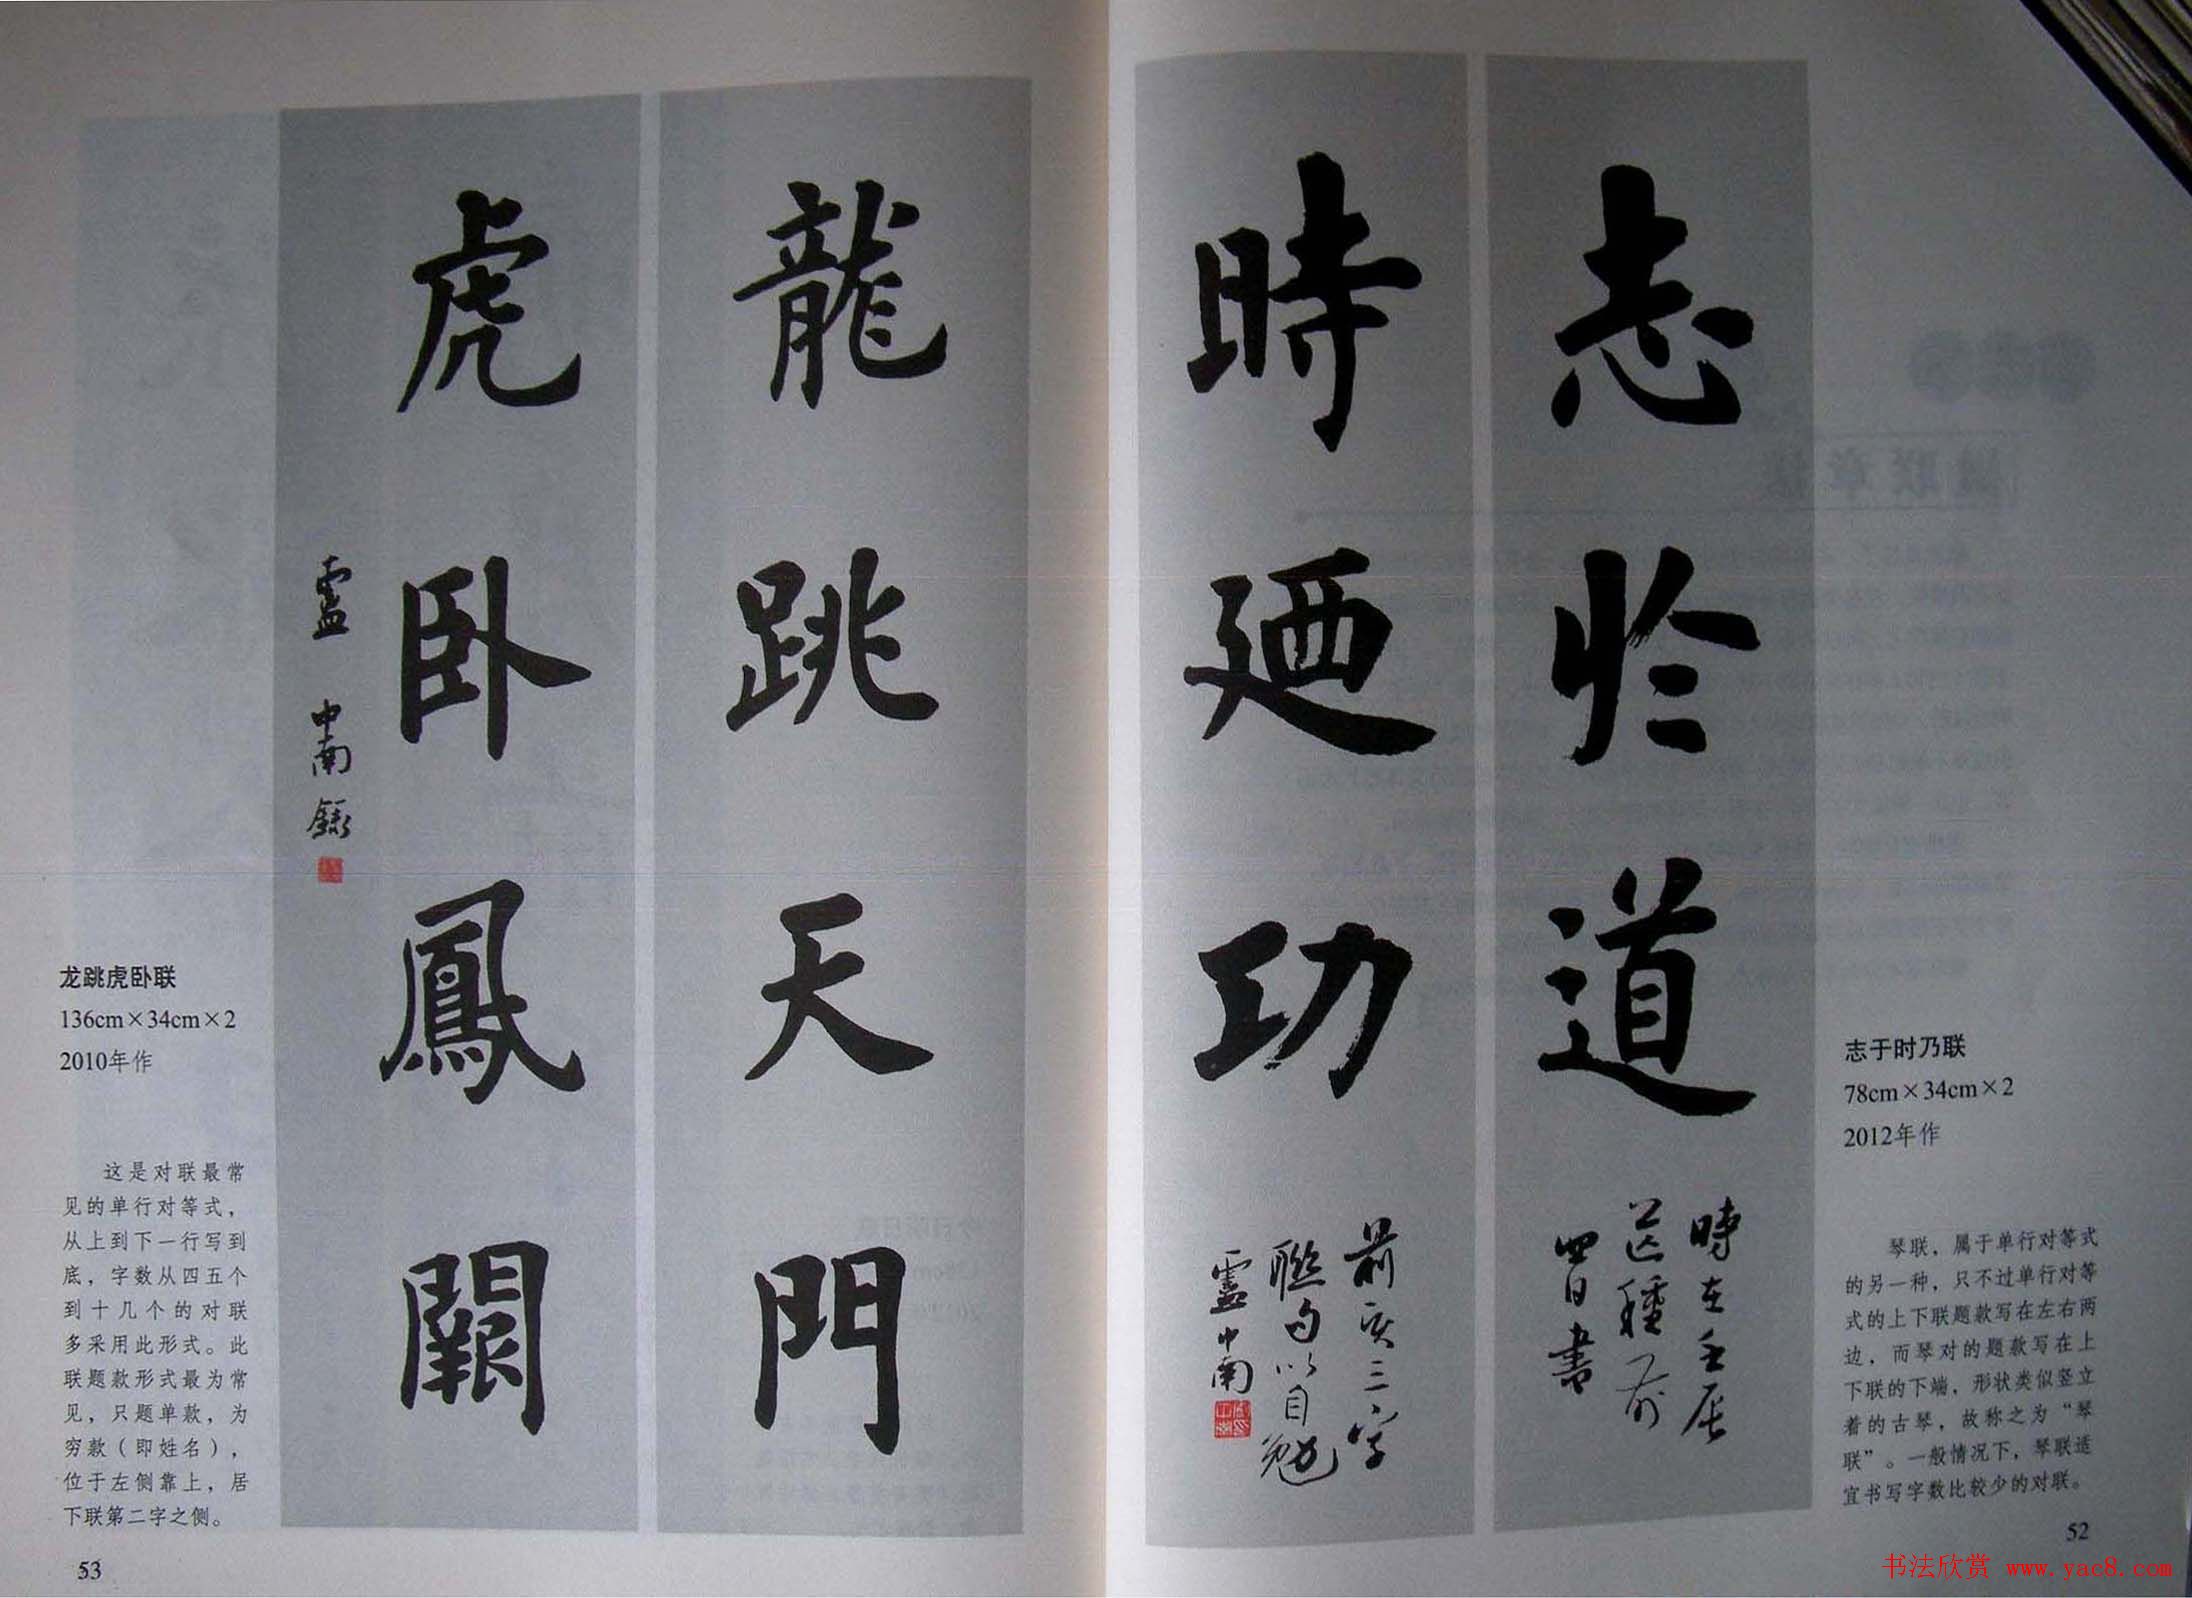 志於道
時在壬辰
芒種前
四日書
時廼功
前亥三字
聯句以自勉
盧中南
志于时乃联
78cm×34cm×2
2012年作
琴联，属于单行对等式
的另一种，只不过单行对等
式的上下联题款写在左右两
边，而琴对的题款写在上
下联的下端，形状类似竖立
着的古琴，故称之为“琴
联”。一般情况下，琴联适
宜书写字数比较少的对联。
52
龍跳天門
虎卧鳳闕
盧中南錄
龙跳虎卧联
136cm×34cm×2
2010年作
这是对联最常
见的单行对等式，
从上到下一行写到
底，字数从四五个
到十几个的对联
多采用此形式。此
联题款形式最为常
见，只题单款，为
穷款（即姓名），
位于左侧靠上，居
下联第二字之侧。
53
书法欣赏 www.yac8.com